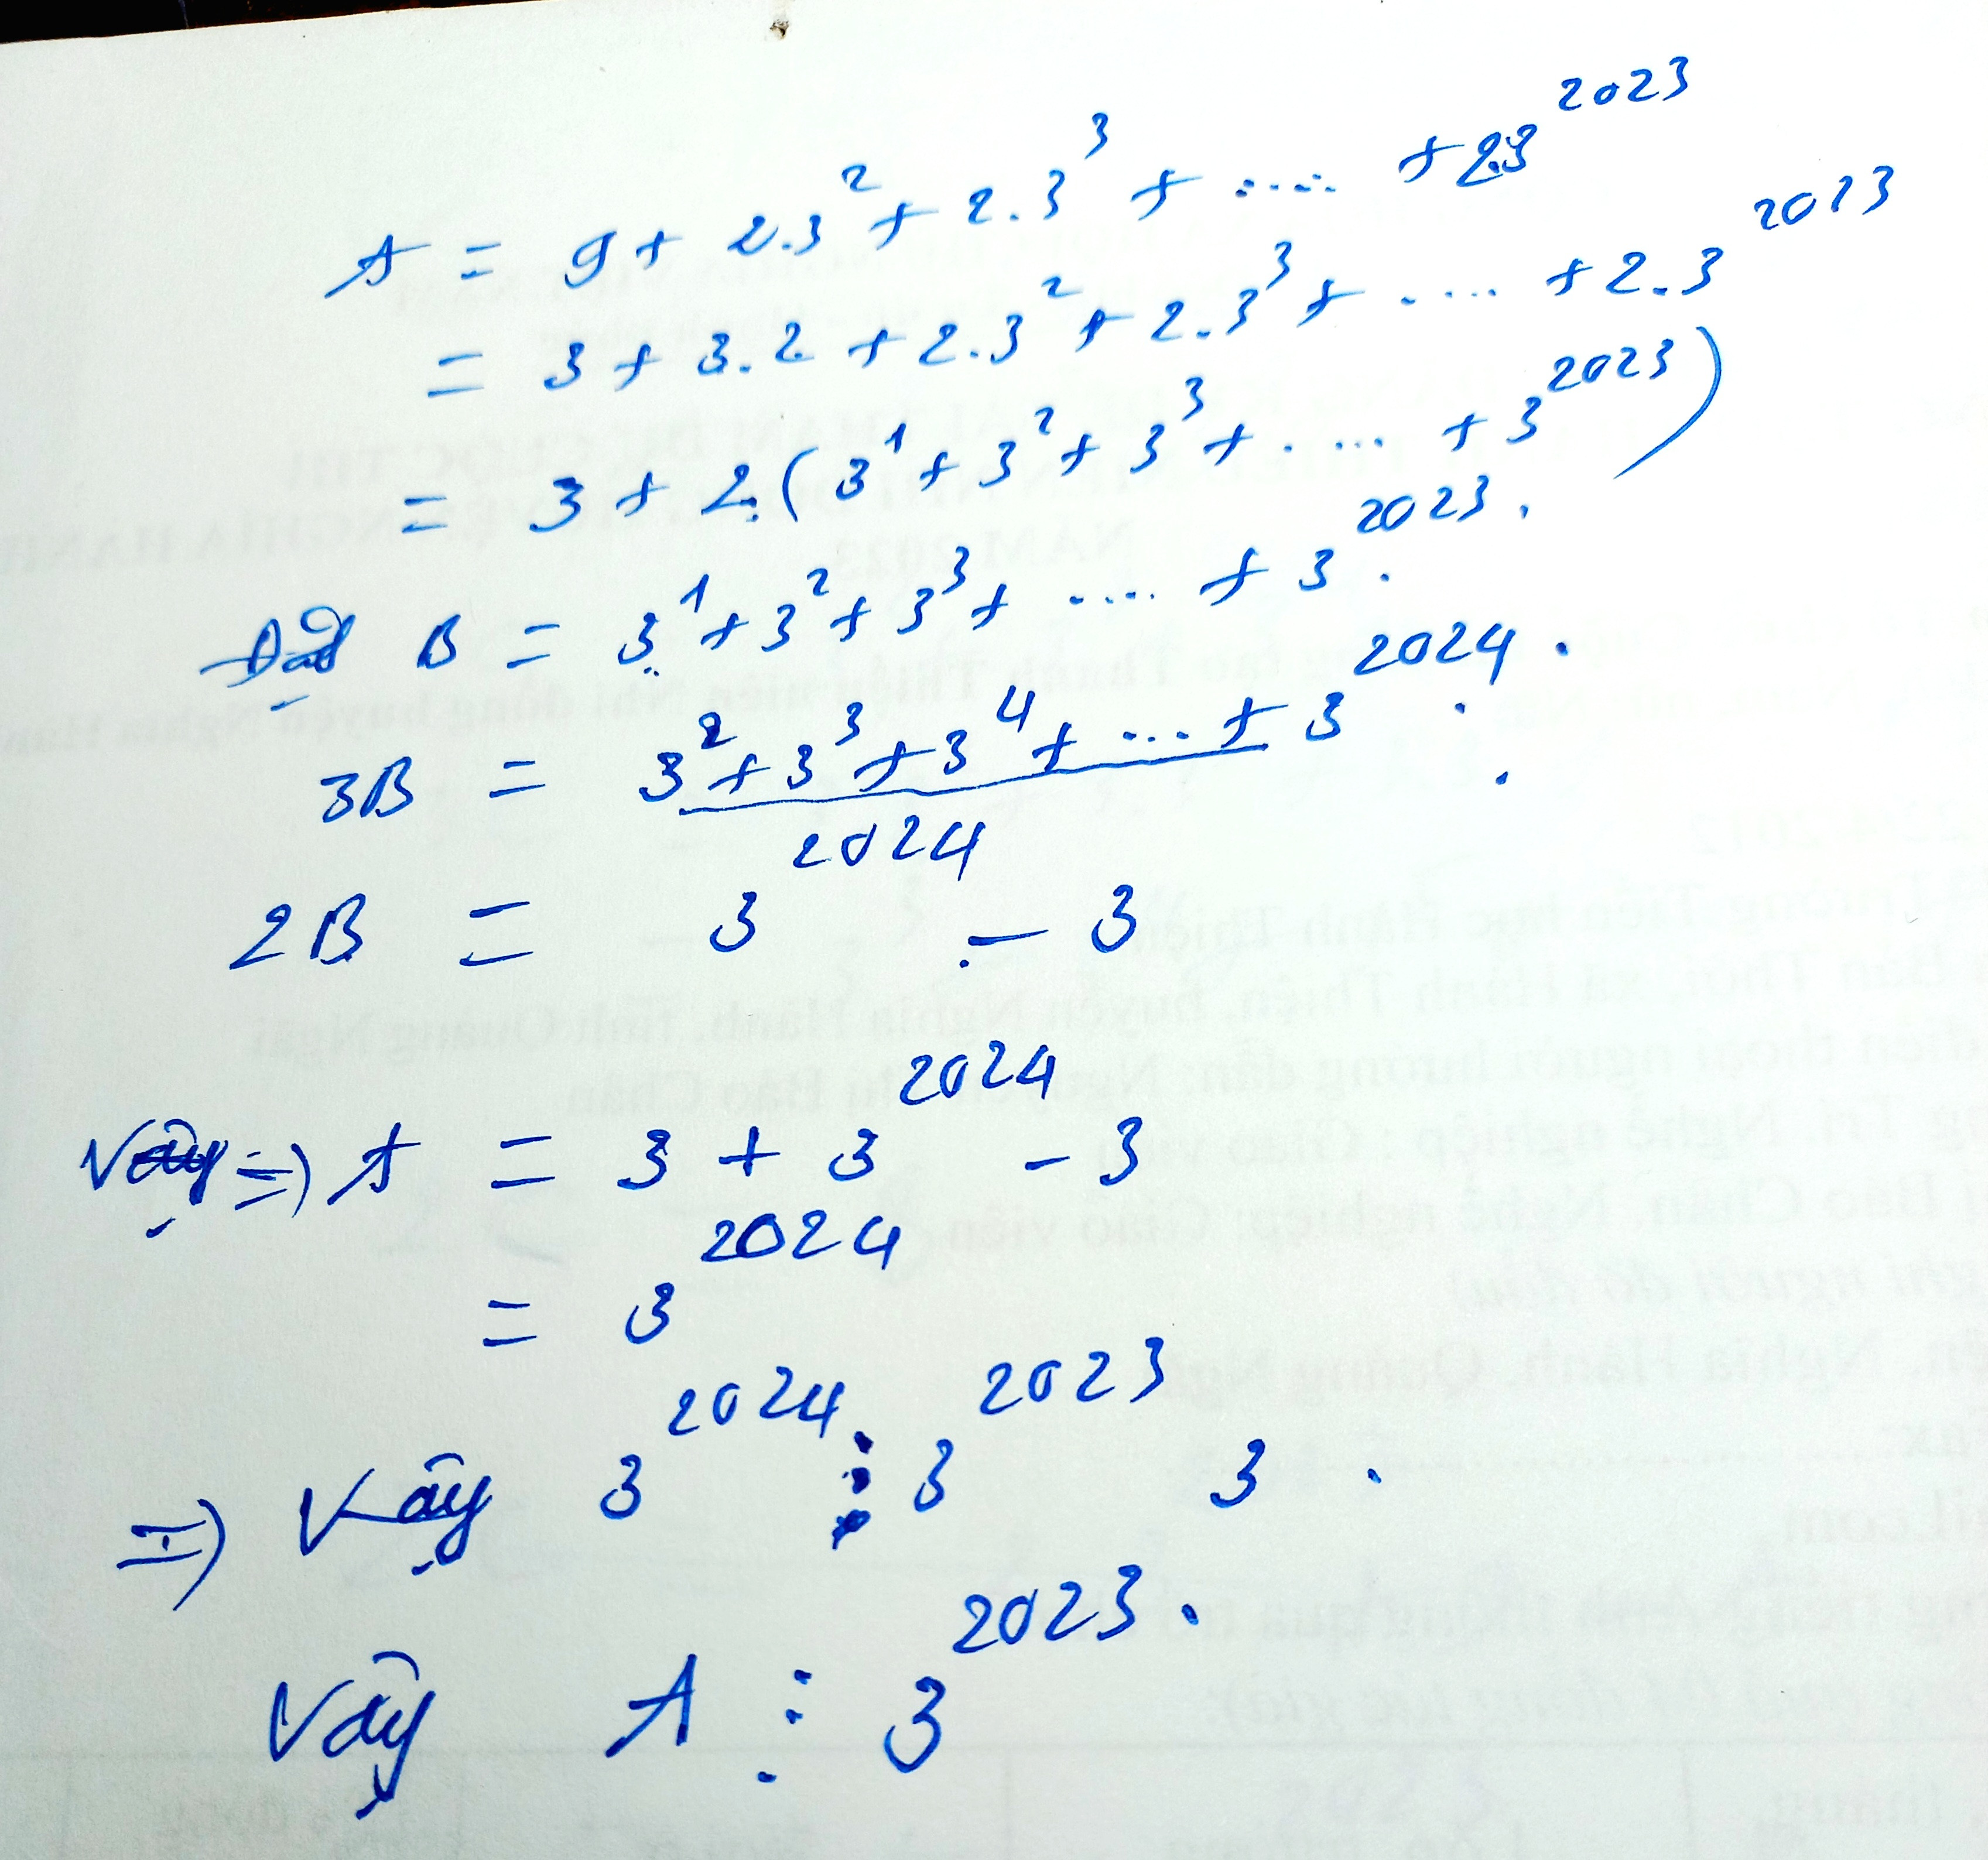 A = 9 + 2.3² + 2.3³ + ..... + 2.3²⁰²³
= 3 + 3.2 + 2.3² + 2.3³ + ..... + 2.3²⁰²³
= 3 + 2.(3¹ + 3² + 3³ + ..... + 3²⁰²³)
Đặt B = 3¹ + 3² + 3³ + ..... + 3²⁰²³.
3B = 3² + 3³ + 3⁴ + ... + 3²⁰²⁴.
2B = 3²⁰²⁴ - 3
Vậy => A = 3 + 3²⁰²⁴ - 3
= 3²⁰²⁴
=> Vậy 3²⁰²⁴ ⋮ 3²⁰²³ 3.
Vậy A ⋮ 3²⁰²³.